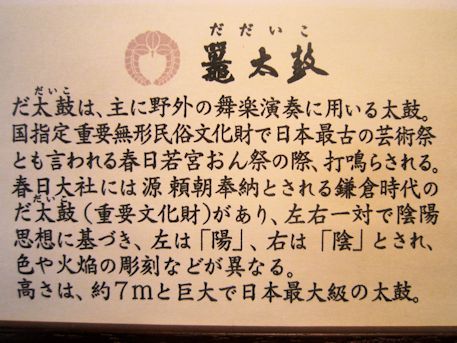 だだいこ
鼉太鼓
だ太鼓は、主に野外の舞楽演奏に用いる太鼓。
だいこ
国指定重要無形民俗文化財で日本最古の芸術祭
とも言われる春日若宮おん祭の際、打鳴らされる。
春日大社には源頼朝奉納とされる鎌倉時代の
だ太鼓(重要文化財)があり、左右一対で陰陽
だいこ
思想に基づき、左は「陽」、右は「陰」とされ、
色や火焔の彫刻などが異なる。
高さは、約7mと巨大で日本最大級の太鼓。